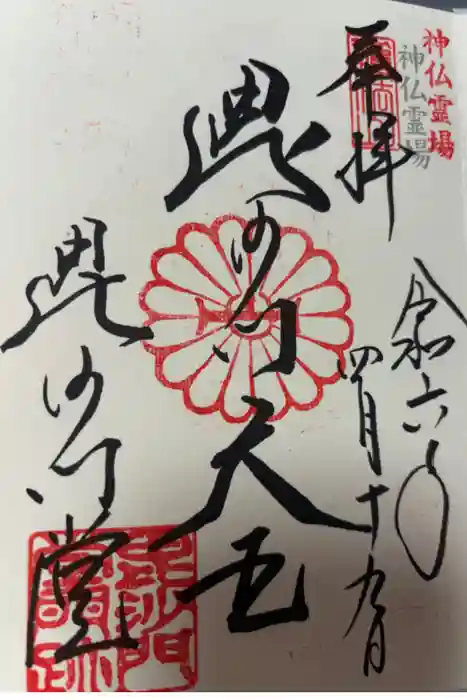 神仏霊場
神仏霊場
奉拝
令和六年
四月十九日
毘沙門天王
毘沙門堂